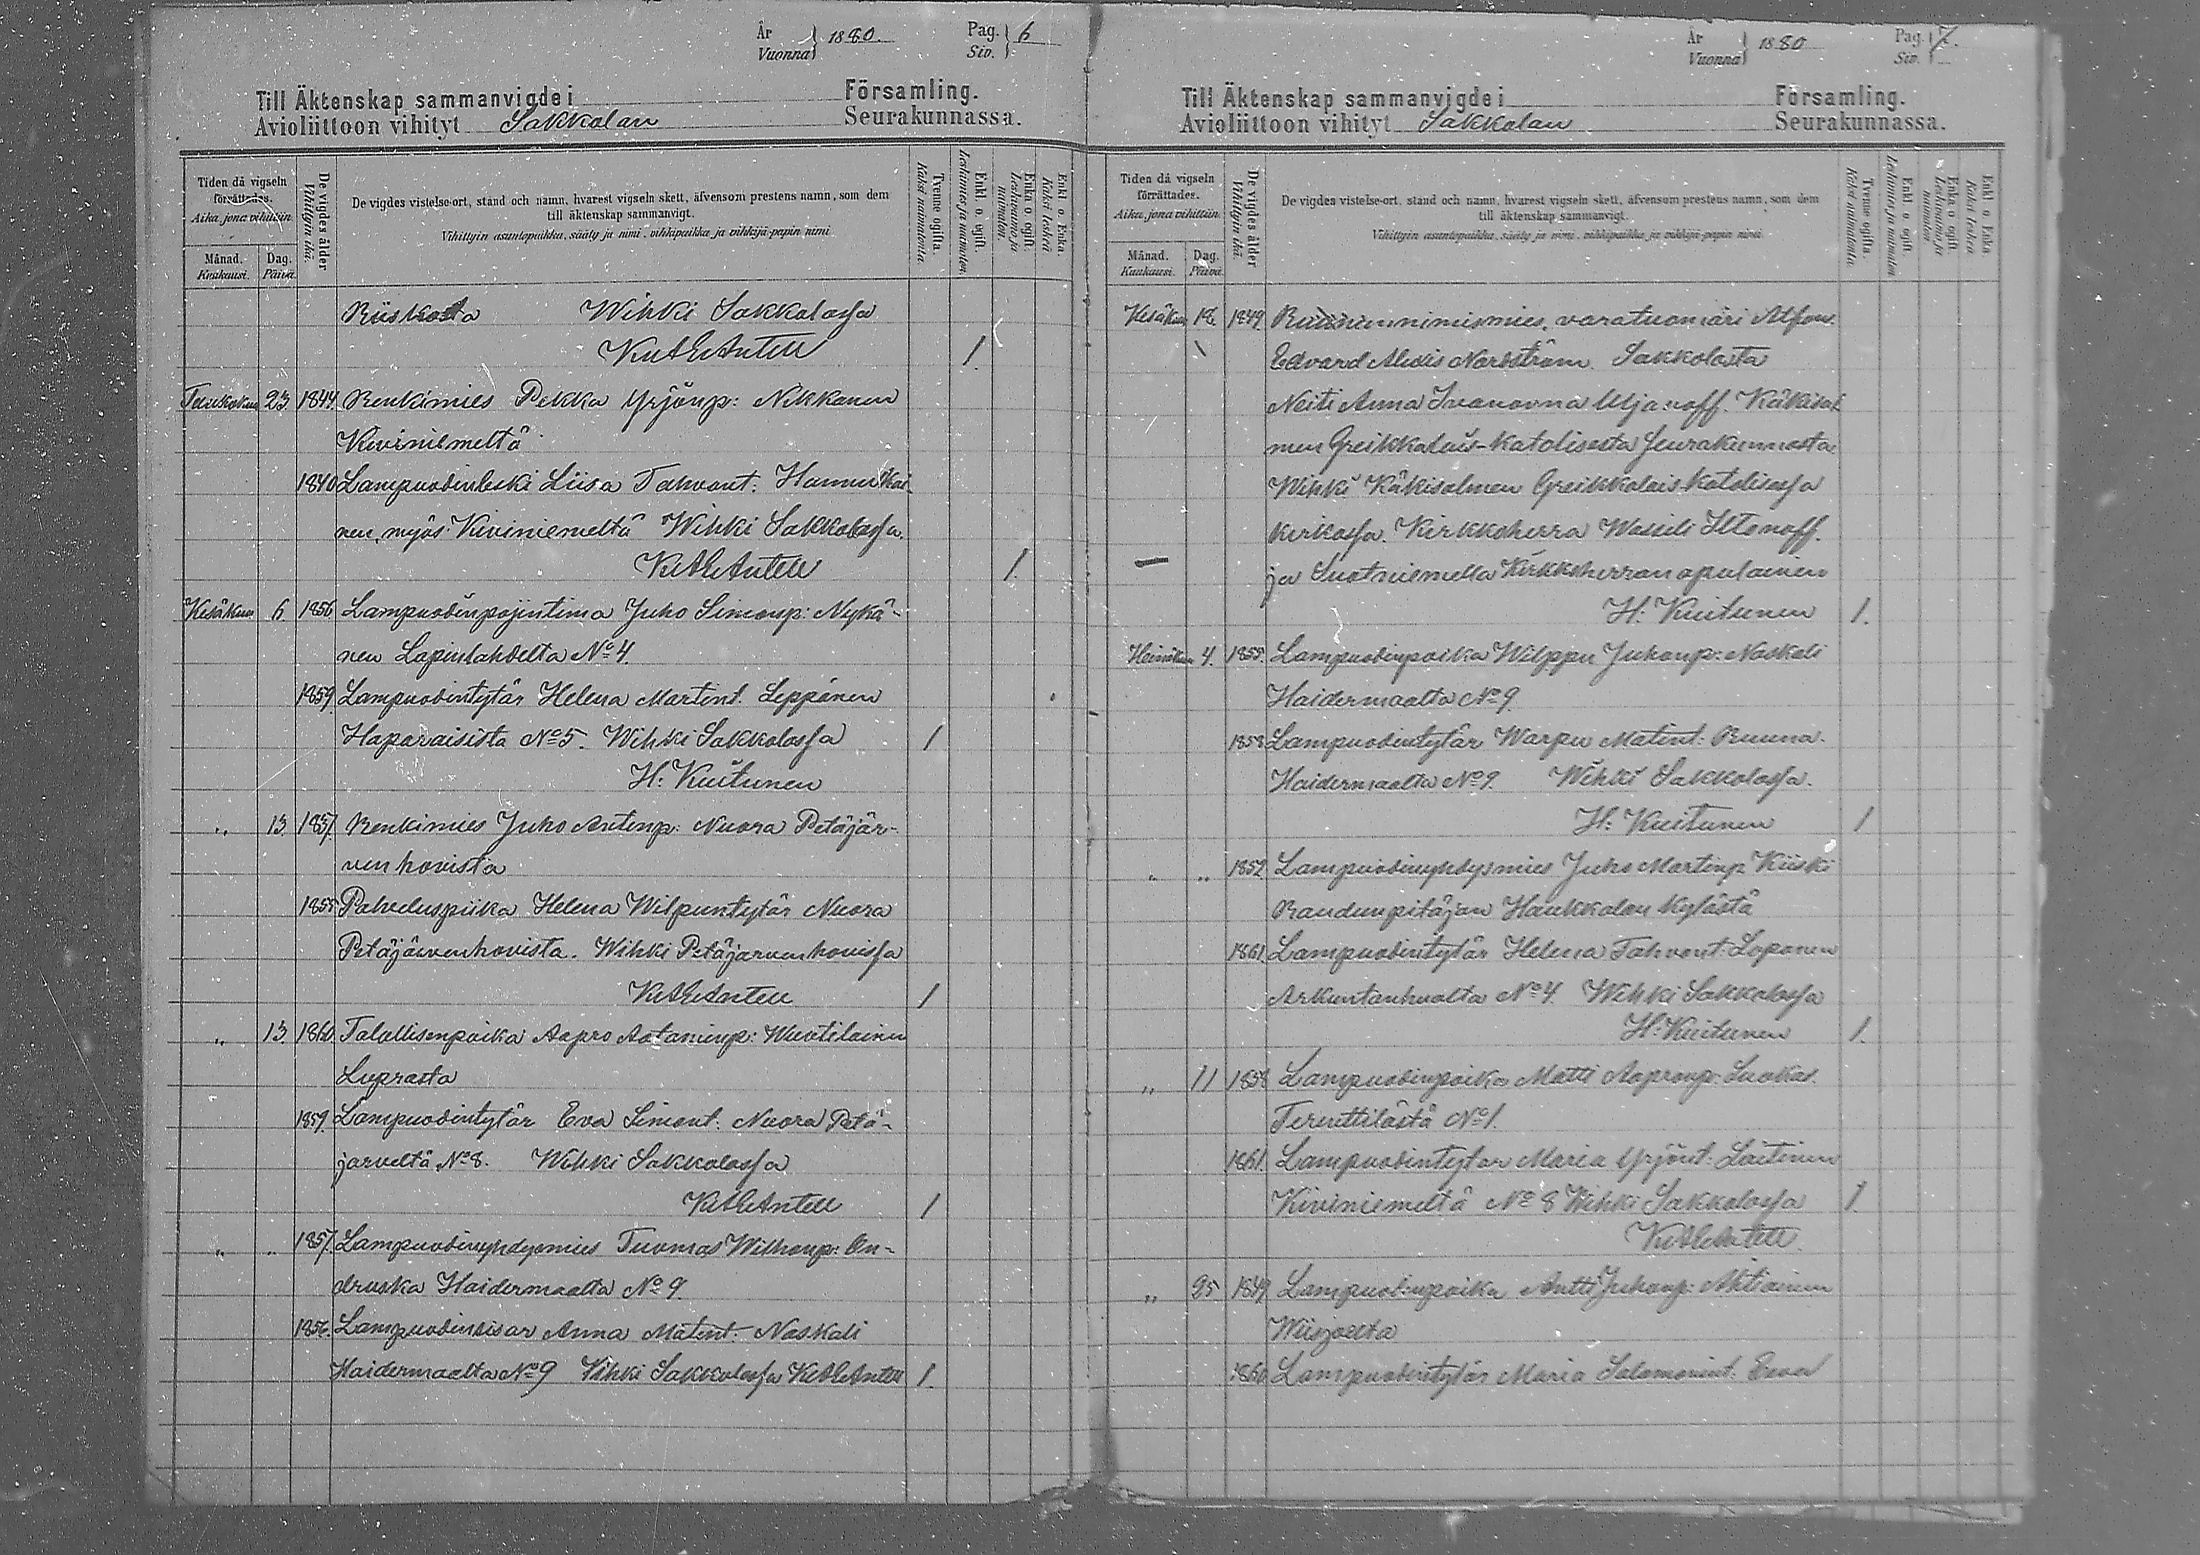 År
Vuonna 1880.
Pag.
Siv. 6
Till Äktenskap sammanvigde i Församling.
Avioliittoon vihityt Sakkolan Seurakunnassa.
Tiden då vigseln förrättades.
Aika, jona vihittiin
Månad.
Kuukausi.
Dag.
Päivä.
De vigdes ålder
Vihittyin ikä.
De vigdes vistelse-ort, stånd och namn, hvarest vigseln skett, äfvensom prestens namn, som dem
till äktenskap sammanvigt.
Vihittyin asuntopaikka, sääty ja nimi, vihkipaikka ja vihkijä-papin nimi
Tvenne ogifta.
Kaksi naimatonta.
Enkl. o. ogift.
Leskimies ja naimaton.
Enka o. ogift.
Leskivaimo ja naimaton.
Enkl. o. Enka.
Kaksi leskeä
Riiskasta Wihki Sakkolassa
K. Ahl. Antell 1.
Toukokuu 23. 1844. Renkimies Pekka Yrjönp: Nikkanen
Kiviniemeltä
1840 Lampuodinleski Liisa Tahvont. Hannukai-
nen, myös Kiviniemeltä Wihki Sakkolassa.
1.
Kesäkuu 6 1856. Lampuodinpojintima Juho Simonp: Nykä-
nen Lapinlahdelta No 4.
1859. Lampuodintytär Helena Martint. Leppänen
Haparaisista No 5. Wihki Sakkolassa 1
H: Kuitunen
" 13. 1857. Renkimies Juho Antinp: Nuora Petäjär-
venhovista
1855 Palveluspiika Helena Wilpuntytär Nuora
Petäjärvenhovista. Wihki Petäjärvenhovissa
1
" 13. 1860. Talollisenpoika Aapro Aataminp: Wuotilainen
Luprasta
1859. Lampuodintytär Eva Simont: Nuora Petä-
jarveltä No 8. Wihki Sakkolassa
1
" " 1857. Lampuodinyhdysmies Tuomas Wilhonp: On-
druska Haidermaalta No 9.
1856. Lampuodinsisar Anna Matint. Naskali
Haidermaalta No 9 Vihki Sakkolassa 1.
År
Vuonna 1880
Pag.
Siv. 7.
Till Äktenskap sammanvigde i Församling.
Avioliittoon vihityt Sakkolan Seurakunnassa.
Tiden då vigseln förrättades.
Aika, jona vihittiin
Månad.
Kuukausi.
Dag.
Päivä.
De vigdes ålder
Vihittyin ikä.
De vigdes vistelse-ort, stånd och namn, hvarest vigseln skett, äfvensom prestens namn, som dem
till äktenskap sammanvigt.
Vihittyin asuntopaikka, sääty ja nimi, vihkipaikka ja vihkijä-papin nimi
Tvenne ogifta.
Kaksi naimatonta.
Enkl. o. ogift.
Leskimies ja naimaton.
Enka o. ogift.
Leskivaimo ja naimaton.
Enkl. o. Enka
Kaksi leskeä
Kesäkuu 18. 1849. Ruununnimismies, varatuomari Alfons
Edvard Alexis Nordström Sakkolasta
Neiti Anna Ivanovna Käkisal
men Greikkalais-Katolisesta Seurakunnasta
Wihki Käkisalmen Greikkalais-Katolisessa
kirkossa. Kirkkoherra Wasili Iltonoff.
ja Suotniemella Kirkkoherran apulainen
H: Kuitunen 1.
Heinäkuu 4. 1855. Lampuodinpoika Wilppu Juhonp: Naskali
Haidermaalta No 9.
1858 Lampuodintytär Warpu Matint: Ruuna
Haidermaalta No 9. Wihki Sakkolassa.
H: Kuitunen 1
" " 1852. Lampuodinyhdysmies Juho Martinp Kiiski
Raudunpitäjän Haukkalan kylästä
1861. Lampuodintytär Helena Tahvont: Loponen
Arkuntanhualta No 4. Wihki Sakkolassa
H: Kuitunen 1.
" 11 1858 Lampuodinpoika Matti Aapronp: Suokas
Teruttilästä No 1.
1861. Lampuodintytar Maria Yrjönt: Laitinen
Kiviniemeltä No 8 Wihki Sakkolassa 1
" 25 1849 Lampuodinpoika Antti Juhonp: Ahtiainen
Wiisjoelta
1860 Lampuodintytär Maria Salomonint. Eeva